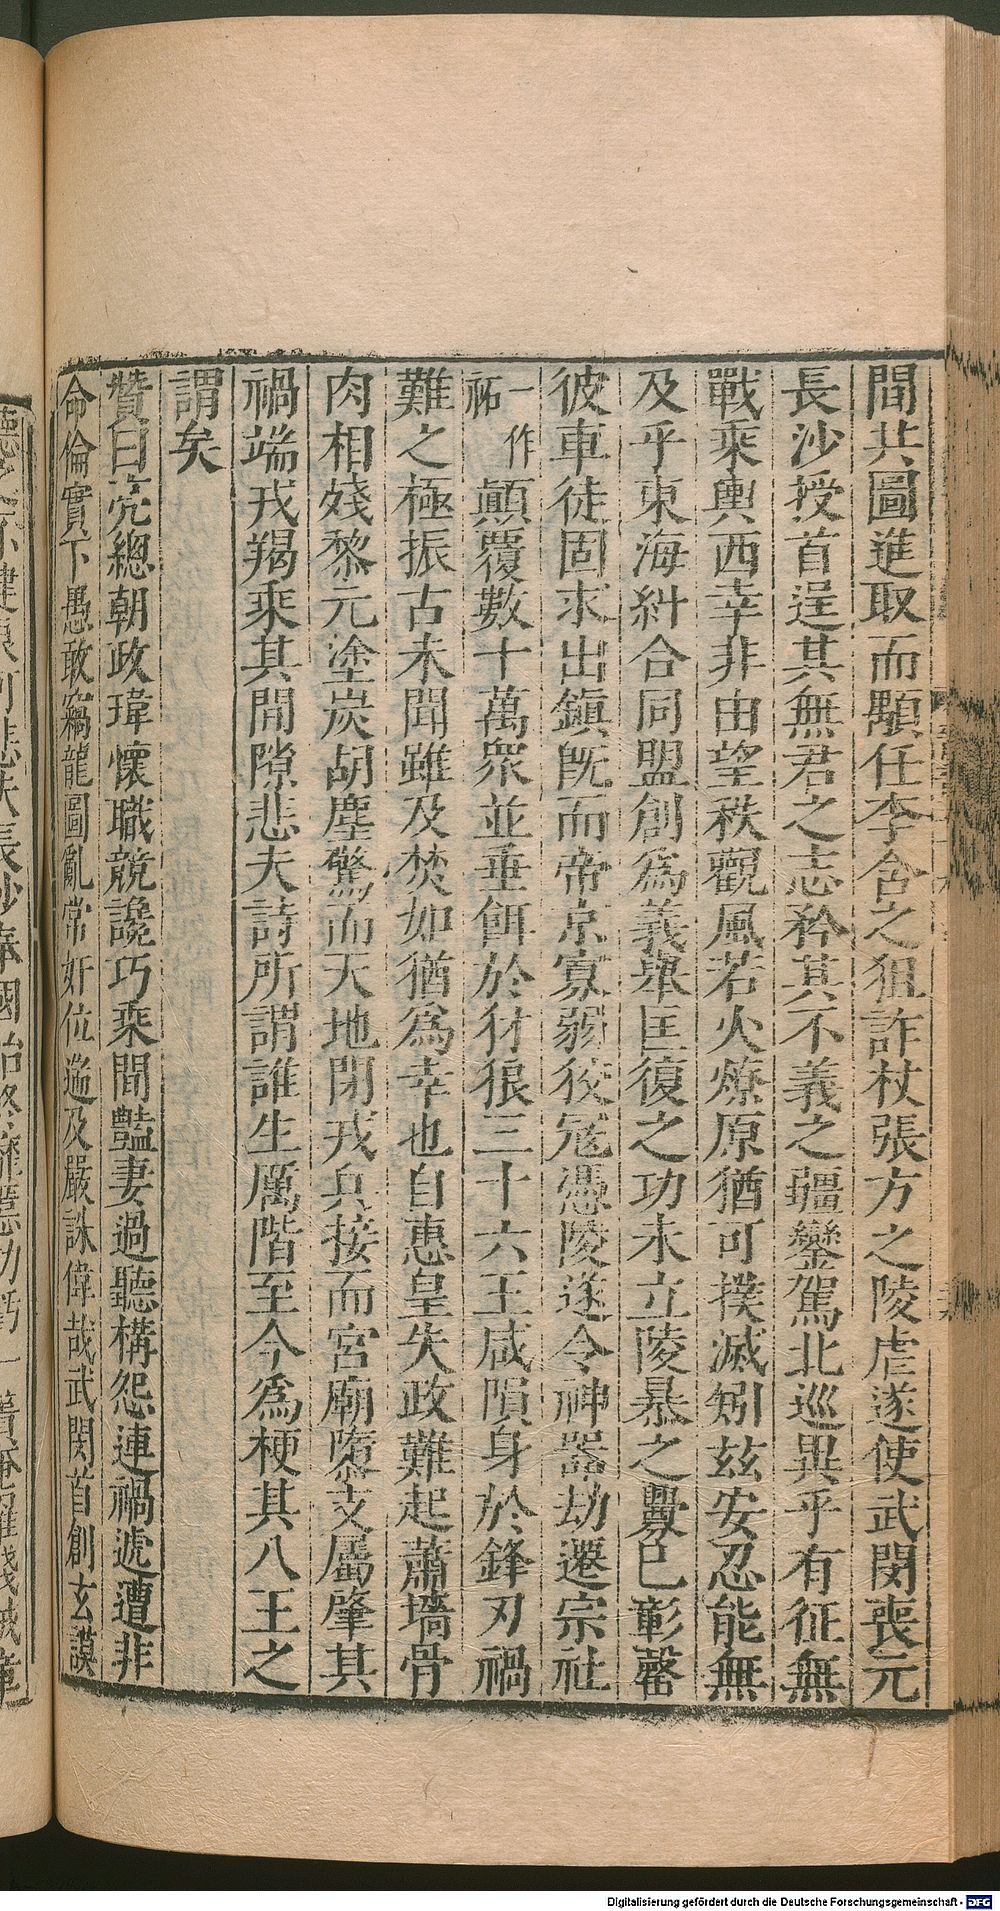 間共圖進取而顒任李含之狙詐杖張方之陵虐遂使武閔喪元
長沙授首逞其無君之志矜其不義之疆鑾駕北巡異乎有征無
戰乘輿西幸非由望秩觀風若火燎原猶可撲滅矧兹安忍能無
及乎東海糾合同盟創爲義舉匡復之功未立陵暴之釁已彰罄
彼車徒固求出鎮既而帝京寡弱狡冦憑陵遂令神器劫遷宗社
一作祏顛覆數十萬衆並垂餌於犲狼三十六王咸隕身於鋒刃禍
難之極振古未聞雖及焚如猶爲幸也自惠皇失政難起蕭墻骨
肉相殘黎元塗炭胡塵驚而天地閉戎兵接而宮廟隳支屬肇其
禍端戎羯乘其間隙悲夫詩所謂誰生厲階至今爲梗其八王之
謂矣
贊曰亮總朝政瑋懷職競讒巧乘間豔妻過聽構怨連禍遞遭非
命倫實下愚敢竊龍圖亂常奸位遄及嚴誅偉哉武閔首創玄謨
Digitalisierung gefördert durch die Deutsche Forschungsgemeinschaft - DFG